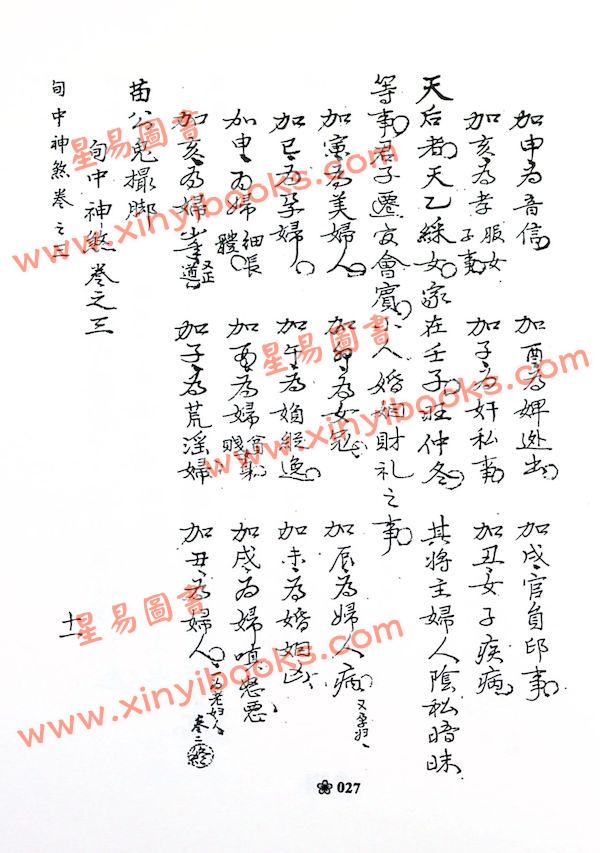 加申為音信 加酉為婢逃出 加戌官員印事
加亥為孝服女子事 加子為奸私事 加丑女子疾病
天后者天乙綵女家在壬子旺仲冬其將主婦人陰私暗昧
等事君子遷官會賓小人婚姻財礼之事
加寅為美婦人 加卯為女冠 加辰為婦人病又孕妇
加巳為孕婦 加午為婦縱逸 加未為婚姻凶
加申為婦細長體 加酉為婦 加戌為婦嗔惡
加亥為婦 加子為荒淫婦 加丑為婦人一為老妇人
卷二終
苗公鬼撮脚
旬中神煞卷之三
旬中神煞卷之三
十一
027
星易圖書
www.xinyibooks.com
星易圖書
www.xinyibooks.com
星易圖書
www.xinyibooks.com